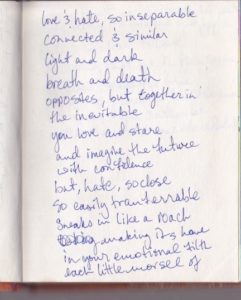 love & hate, so inseparable
connected & similar
light and dark
breath and death
opposites, but together in
the inevitable
you love and stare
and imagine the future
with confidence
but, hate, so close
so easily transferrable
sneaks in like a roach
making its home
in your emotional filth
each little morsel of